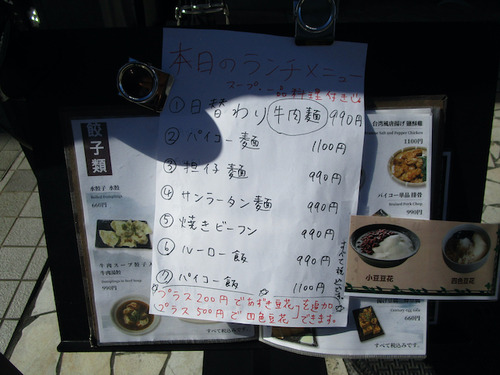 本日のランチメニュー
スープ・一品料理付き
① 日替わり 牛肉麺 990円
② パイコー麺 1100円
③ 担仔麺 990円
④ サンラータン麺 990円
⑤ 焼きビーフン 990円
⑥ ルーロー飯 990円
⑦ パイコー飯 1100円
すべて税込です。
プラス200円であずき豆花を追加
プラス500円で四色豆花できます。
餃子類
水餃子 水餃
660円
牛肉スープ餃子
牛肉湯餃
990円
すべて税込み
台湾風唐揚げ 鹽酥雞
1100円
パイコー単品 排骨
990円
小豆豆花
四色豆花
660円
すべて税込みです。